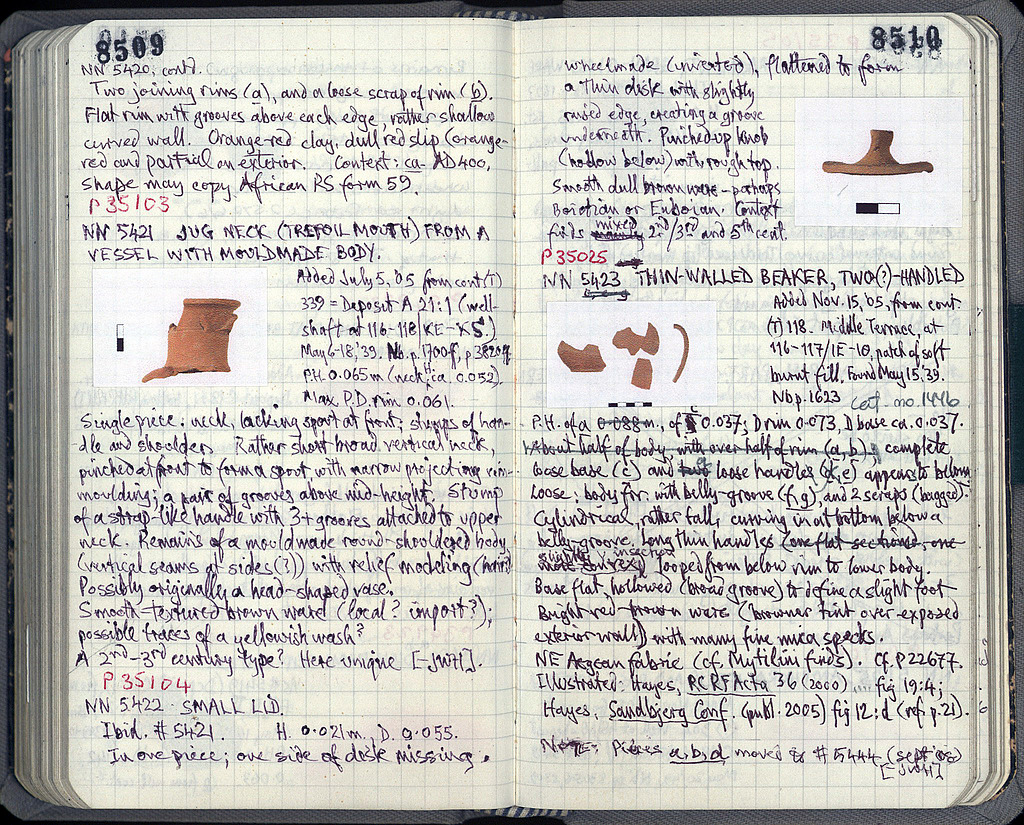 8509
NN 5420, contd.
Two joining rims (a), and a loose scrap of rim (b).
Flat rim with grooves above each edge, rather shallow
curved wall. Orange-red clay, dull red slip (orange-
red and partial on exterior. Context: ca. AD 400,
shape may copy African RS form 59.
P 35103
NN 5421 JUG NECK (TREFOIL MOUTH) FROM A
VESSEL WITH MOULDMADE BODY.
Added July 5, '05 from cont (T)
339 = Deposit A 21:1 (well-
shaft at 116-118/KE-KS.)
May 6-18, '39. Nb. p. 1700ff, p 3820ff
P.H. 0.065 m (neck H. ca. 0.052).
Max. P.D. rim 0.061.
Single piece: neck, lacking spout at front; stumps of han-
dle and shoulder. Rather short broad vertical neck,
pinched at front to form a spout with narrow projecting rim-
moulding; a pair of grooves above mid-height. Stump
of a strap-like handle with 3+ grooves attached to upper
neck. Remains of a mouldmade round-shouldered body
(vertical seams at sides (?)) with relief modeling (hair?)
Possibly originally a head-shaped vase.
Smooth-textured brown ware (local? import?);
possible traces of a yellowish wash?
A 2nd-3rd century type? Here unique [-JWH].
P 35104
NN 5422 SMALL LID
Ibid. # 5421. H. 0.021 m, D. 0.055.
In one piece; one side of disk missing.
8510
wheelmade (inverted), flattened to form
a thin disk with slightly
raised edge, creating a groove
underneath. Pinched-up knob
(hollow below) with rough top.
Smooth dull brown ware - perhaps
Boiotian or Euboian. Context
finds mixed 2nd/3rd and 5th cent.
P 35025
NN 5423 THIN-WALLED BEAKER, TWO(?)-HANDLED
Added Nov. 15, '05, from cont
(T) 118. Middle Terrace, at
116-117/IE-10, patch of soft
burnt fill. Found May 15, 39.
Nb p. 1623 Cat. no. 1446
P.H. of a 0.088 m, of c 0.037; D rim 0.073, D base ca. 0.037.
About half of body, with over half of rim (a, b), complete
base (c) and loose handles (d, e) appears to belong
Loose: body fr. with belly-groove (f, g), and 2 scraps (bagged).
Cylindrical, rather tall, curving in at bottom below a
belly-groove. Long thin handles (one flat sectioned, one
slightly insected looped from below rim to lower body.
Base flat, hollowed (broad groove) to define a slight foot
Bright red-brown ware (browner tint over exposed
exterior wall) with many fine mica specks.
NE Aegean fabric (cf. Mytilini finds). Cf. P 22677.
Illustrated: Hayes, RCRF Acta 36 (2000) .... fig 19:4;
Hayes, Sandbjerg Conf. (publ. 2005) fig 12:d (ref. p. 21).
Note: Pieces a, b, d moved to # 5444 (Sept '08)
[-JWH]